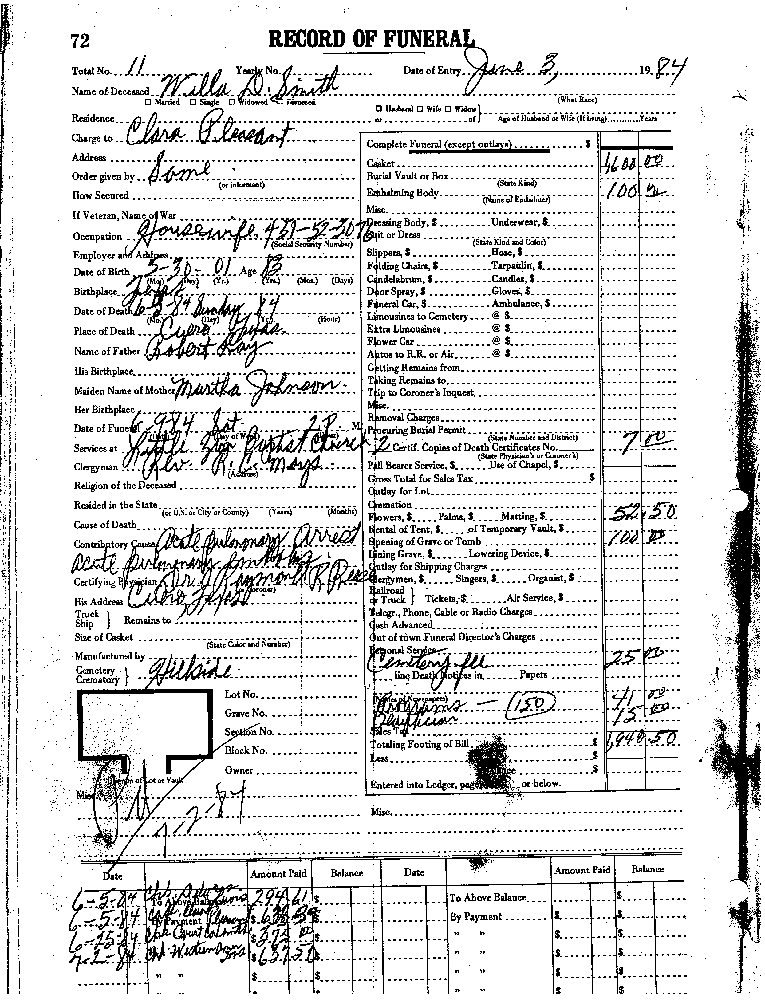 72 RECORD OF FUNERAL
Total No. 11 Yearly No. Date of Entry June 3, 1984
Name of Deceased Willa D. Smith
☐ Married ☐ Single ☐ Widowed ☐ Divorced (What Race)
Residence ☐ Husband ☐ Wife ☐ Widow or of Age of Husband or Wife (If living) Years
Charge to Clara Pleasant
Address
Order given by Same
(or informant)
How Secured
If Veteran, Name of War
Occupation Housewife
(Social Security Number)
Employer and Address
Date of Birth 5-30-01 Age 83
(Mo.) (Day) (Yr.) (Yrs.) (Mos.) (Days)
Birthplace
Date of Death 6-3-84 Sunday 84
(Mo.) (Day) (Yr.) (Hour)
Place of Death Cuero Texas
Name of Father Robert Ray
His Birthplace
Maiden Name of Mother Martha Johnson
Her Birthplace
Date of Funeral 6-9-84 Sat 2 P. M.
Services at Little Zion Baptist Church
Clergyman Rev. R. C. Mays
(Address)
Religion of the Deceased
Resided in the State
(or U.S. or City or County) (Years) (Months)
Cause of Death
Contributory Cause Acute Pulmonary Arrest
Acute Pulmonary
Certifying Physician Dr. Raymond R. Reese
(or Coroner)
His Address Cuero Texas
Truck Ship } Remains to
Size of Casket
(State Color and Number)
Manufactured by
Cemetery Crematory } Hillside
Lot No.
Grave No.
Section No.
Block No.
Owner
Diagram of Lot or Vault
Misc.
7-2-84
Complete Funeral (except outlays) $
Casket 1600 00
Burial Vault or Box
(State Kind)
Embalming Body 100 00
(Name of Embalmer)
Misc.
Dressing Body, $ Underwear, $
Suit or Dress
(State Kind and Color)
Slippers, $ Hose, $
Folding Chairs, $ Tarpaulin, $
Candelabrum, $ Candles, $
Door Spray, $ Gloves, $
Funeral Car, $ Ambulance, $
Limousines to Cemetery @ $
Extra Limousines @ $
Flower Car @ $
Autos to R.R. or Air @ $
Getting Remains from
Taking Remains to
Trip to Coroner's Inquest
Misc.
Removal Charges
Procuring Burial Permit
(State Number and District)
2 Certif. Copies of Death Certificates No. 7 00
(State Physician's or Coroner's)
Pall Bearer Service, $ Use of Chapel, $
Gross Total for Sales Tax $
Outlay for Lot
Cremation
Flowers, $ Palms, $ Matting, $ 52.50
Rental of Tent, $ of Temporary Vault, $
Opening of Grave or Tomb 100 00
Lining Grave, $ Lowering Device, $
Outlay for Shipping Charges
Clergymen, $ Singers, $ Organist, $
Railroad or Truck } Tickets, $ Air Service, $
Telegr., Phone, Cable or Radio Charges
Cash Advanced
Out of town Funeral Director's Charges
Personal Service
Cemetery fee 25 00
line Death Notices in Papers
(Names of Newspapers)
Programs — (150) 41 00
Beautician 15 00
Sales Tax
Totaling Footing of Bill $ 1,940.50
Less $
$
Entered into Ledger, page or below.
Misc.
Date Amount Paid Balance Date Amount Paid Balance
6-5-84 294 61 $ To Above Balance $
6-5-84 By Payment $
6-15-84 375 00 $ " " $
7-2-84 637 50 $ " " $
" " $ $ " " $